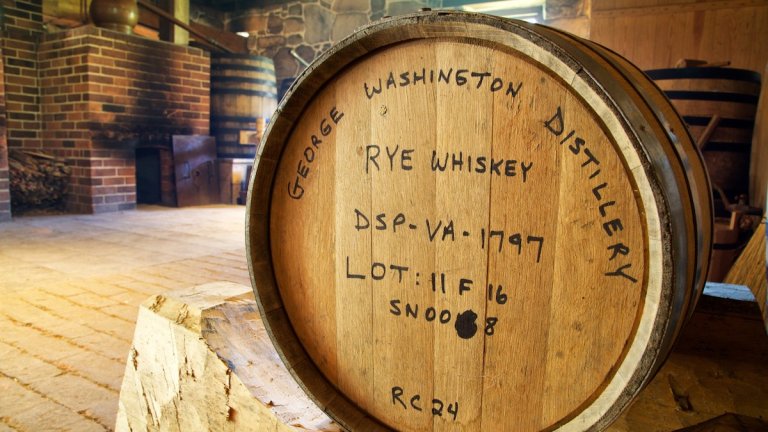 GEORGE WASHINGTON DISTILLERY
RYE WHISKEY
DSP-VA-1797
LOT: 11 F 16
SN00 8
RC24